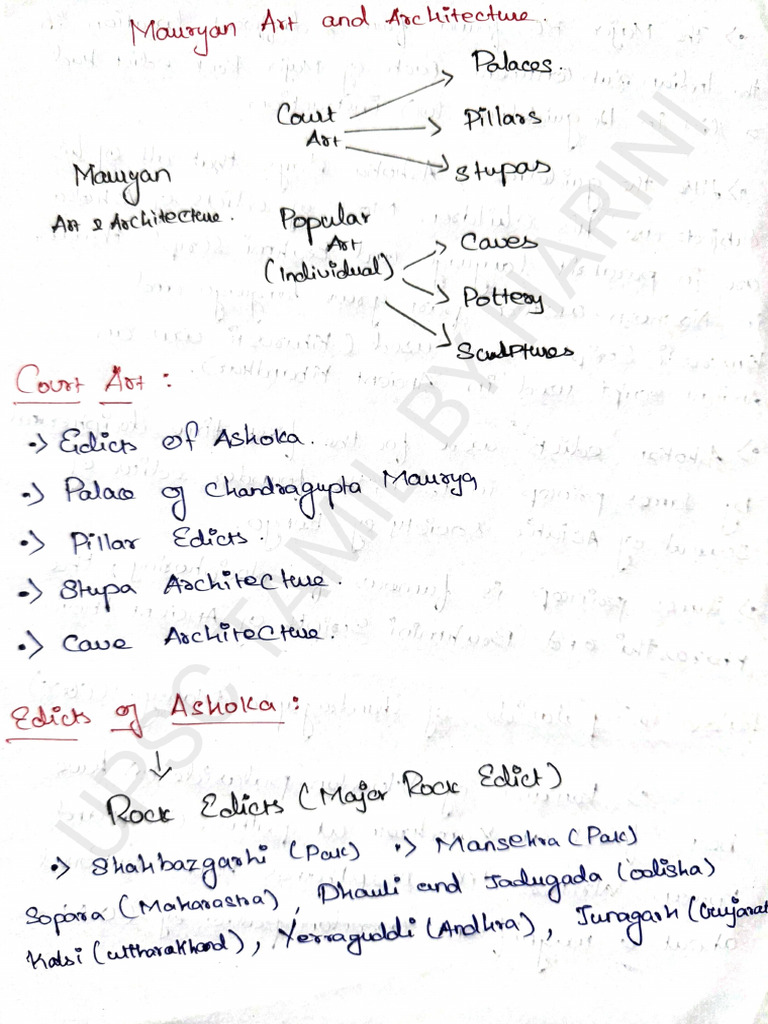 Mauryan Art and Architecture.
Palaces.
Court Art
Pillars
Stupas
Mauryan
Art & Architecture.
Popular
Art
(Individual)
Caves
Pottery
Sculptures
Court Art :
•> Edicts of Ashoka.
•> Palace of Chandragupta Maurya
•> Pillar Edicts.
•> Stupa Architecture.
•> Cave Architecture.
Edicts of Ashoka :
Rock Edicts (Major Rock Edict)
•> Shahbazgarhi (Pak) •> Mansehra (Pak)
Sopara (Maharastra), Dhauli and Jadugada (Odisha)
Kalsi (uttharakhand), Yerraguddi (Andhra), Junagarh (Gujarat
UPSC TAMIL BY HARINI